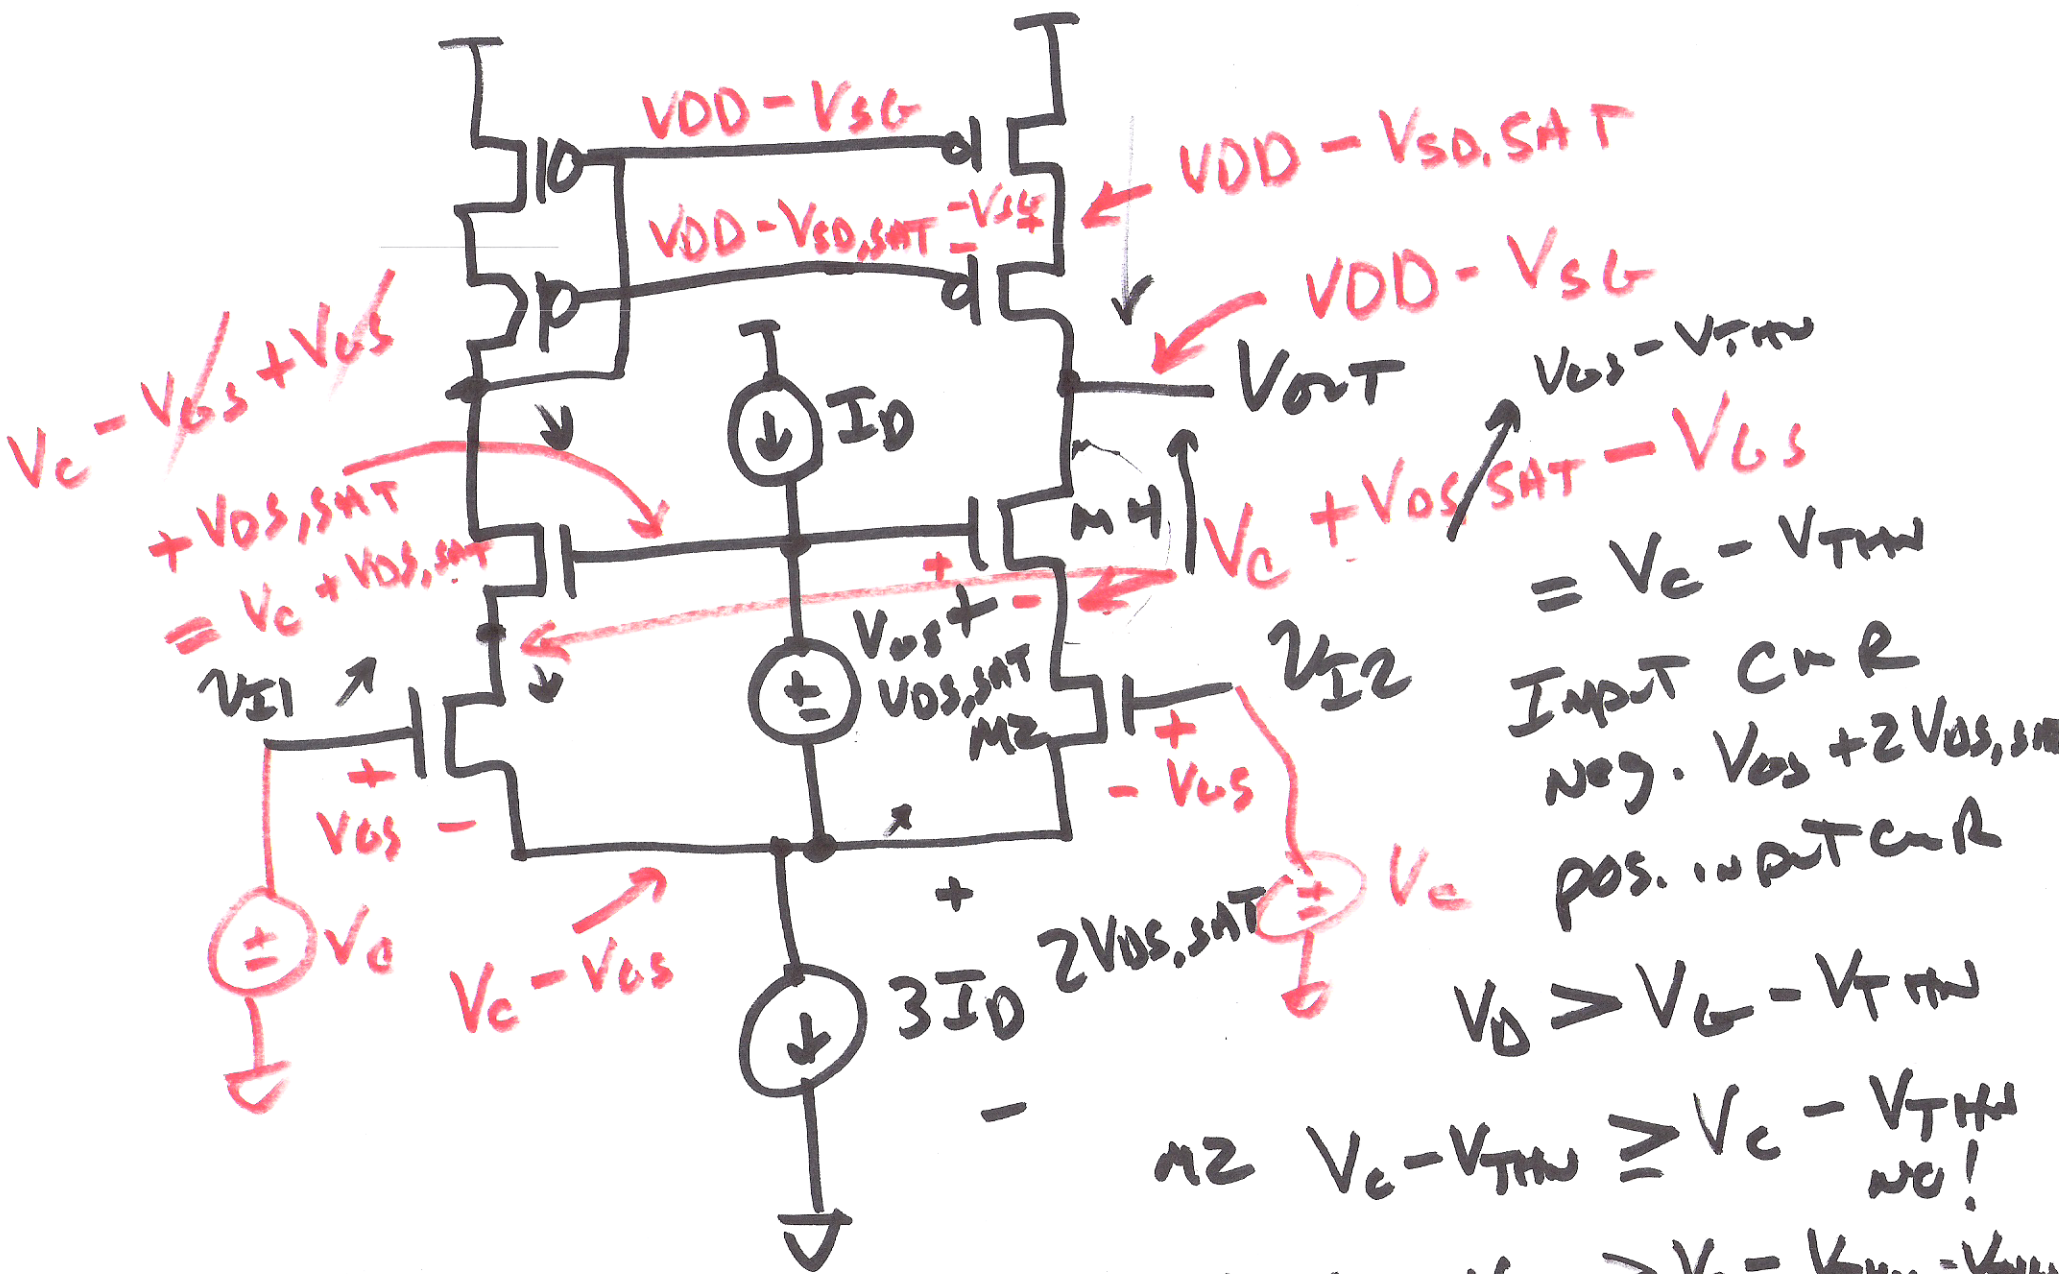 VDD - VSG
VDD - VSD,SAT
VDD - VSD,SAT - VSG
+
-
VDD - VSG
VOUT
VGS - VTHN
VC - VGS + VGS
+ VDS,SAT
= VC + VDS,SAT
ID
M4
VC + VDS,SAT - VGS
= VC - VTHN
+
-
VGS +
VDS,SAT
M2
VI1
VI2
+
VGS -
+
- VGS
INPUT CMR
Neg. VGS + 2VDS,SA
pos. input CMR
VC
VC - VGS
3ID
+
2VDS,SAT
-
VC
VD > VG - VTHN
M2 VC - VTHN ≥ VC - VTHN
NO!